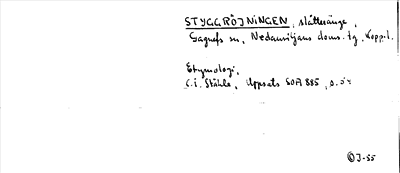 STYGGRÖJNINGEN, slåtteränge,
Gagnefs sn, Nedansiljans doms. tg, Kopp.l.
Etymologi,
C.I. Ståhle, Uppsats SOÄ 885, s.
OJ-55